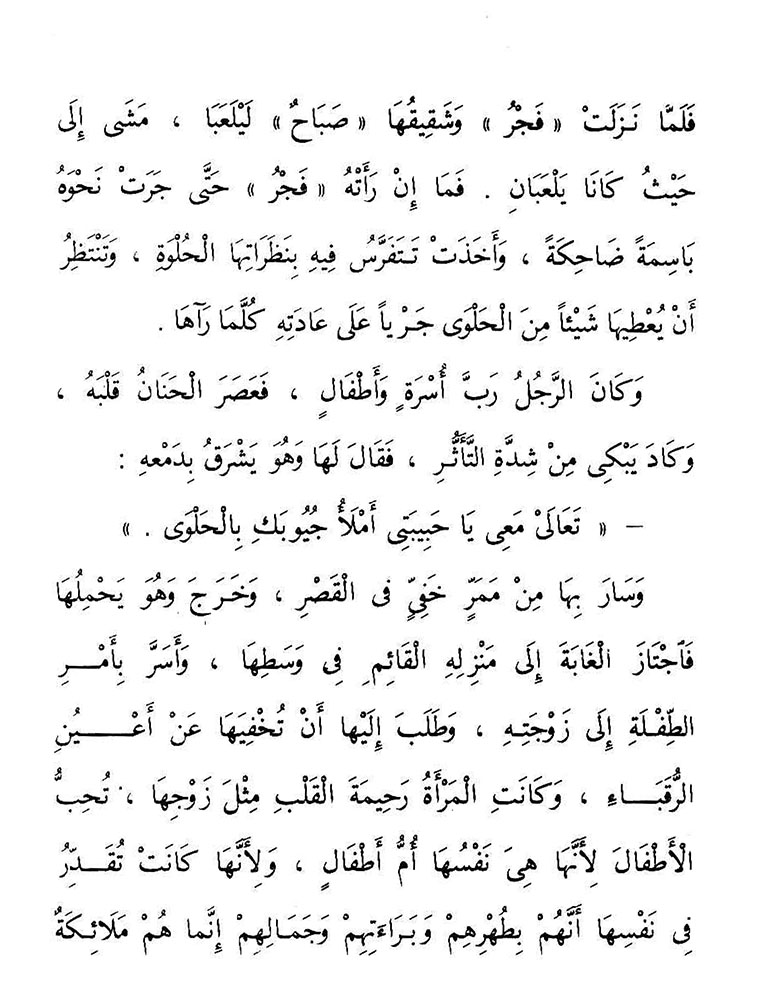 فَلَمَّا نَزَلَتْ « فَجْرُ » وَشَقِيقُهَا « صَبَاحُ » لَيْلَعَبَا ، مَشَى إِلَى
حَيْثُ كَانَا يَلْعَبَانِ . فَمَا إِنْ رَأَتْهُ « فَجْرُ » حَتَّى جَرَتْ نَحْوَهُ
بَاسِمَةً ضَاحِكَةً ، وَأَخَذَتْ تَتَفَرَّسُ فِيهِ بِنَظَرَاتِهَا الْحُلْوَةِ ، وَتَنْتَظِرُ
أَنْ يُعْطِيهَا شَيْئاً مِنَ الْحَلْوَى جَرْياً عَلَى عَادَتِهِ كُلَّمَا رَآهَا .
وَكَانَ الرَّجُلُ رَبَّ أُسْرَةٍ وَأَطْفَالٍ ، فَعَصَرَ الْحَنَانُ قَلْبَهُ ،
وَكَادَ يَبْكِى مِنْ شِدَّةِ التَّأَثُّرِ ، فَقَالَ لَهَا وَهُوَ يَشْرَقُ بِدَمْعِهِ :
– « تَعَالَىْ مَعِى يَا حَبِيبَتِى أَمْلَأُ جُيُوبَكِ بِالْحَلْوَى . »
وَسَارَ بِهَا مِنْ مَمَرٍّ خَفِيٍّ فِى الْقَصْرِ ، وَخَرَجَ وَهُوَ يَحْمِلُهَا
فَاجْتَازَ الْغَابَةَ إِلَى مَنْزِلِهِ الْقَائِمِ فِى وَسَطِهَا ، وَأَسَرَّ بِأَمْرِ
الطِّفْلَةِ إِلَى زَوْجَتِهِ ، وَطَلَبَ إِلَيْها أَنْ تُخْفِيَهَا عَنْ أَعْيُنِ
الرُّقَبَاءِ ، وَكَانَتِ الْمَرْأَةُ رَحِيمَةَ الْقَلْبِ مِثْلَ زَوْجِهَا ، تُحِبُّ
الْأَطْفَالَ لِأَنَّهَا هِىَ نَفْسُهَا أُمُّ أَطْفَالٍ ، وَلِأَنَّهَا كَانَتْ تُقَدِّرُ
فِى نَفْسِهَا أَنَّهُمْ بِطُهْرِهِمْ وَبَرَاءَتِهِمْ وَجَمَالِهِمْ إِنَّما هُمْ مَلَائِكَةٌ